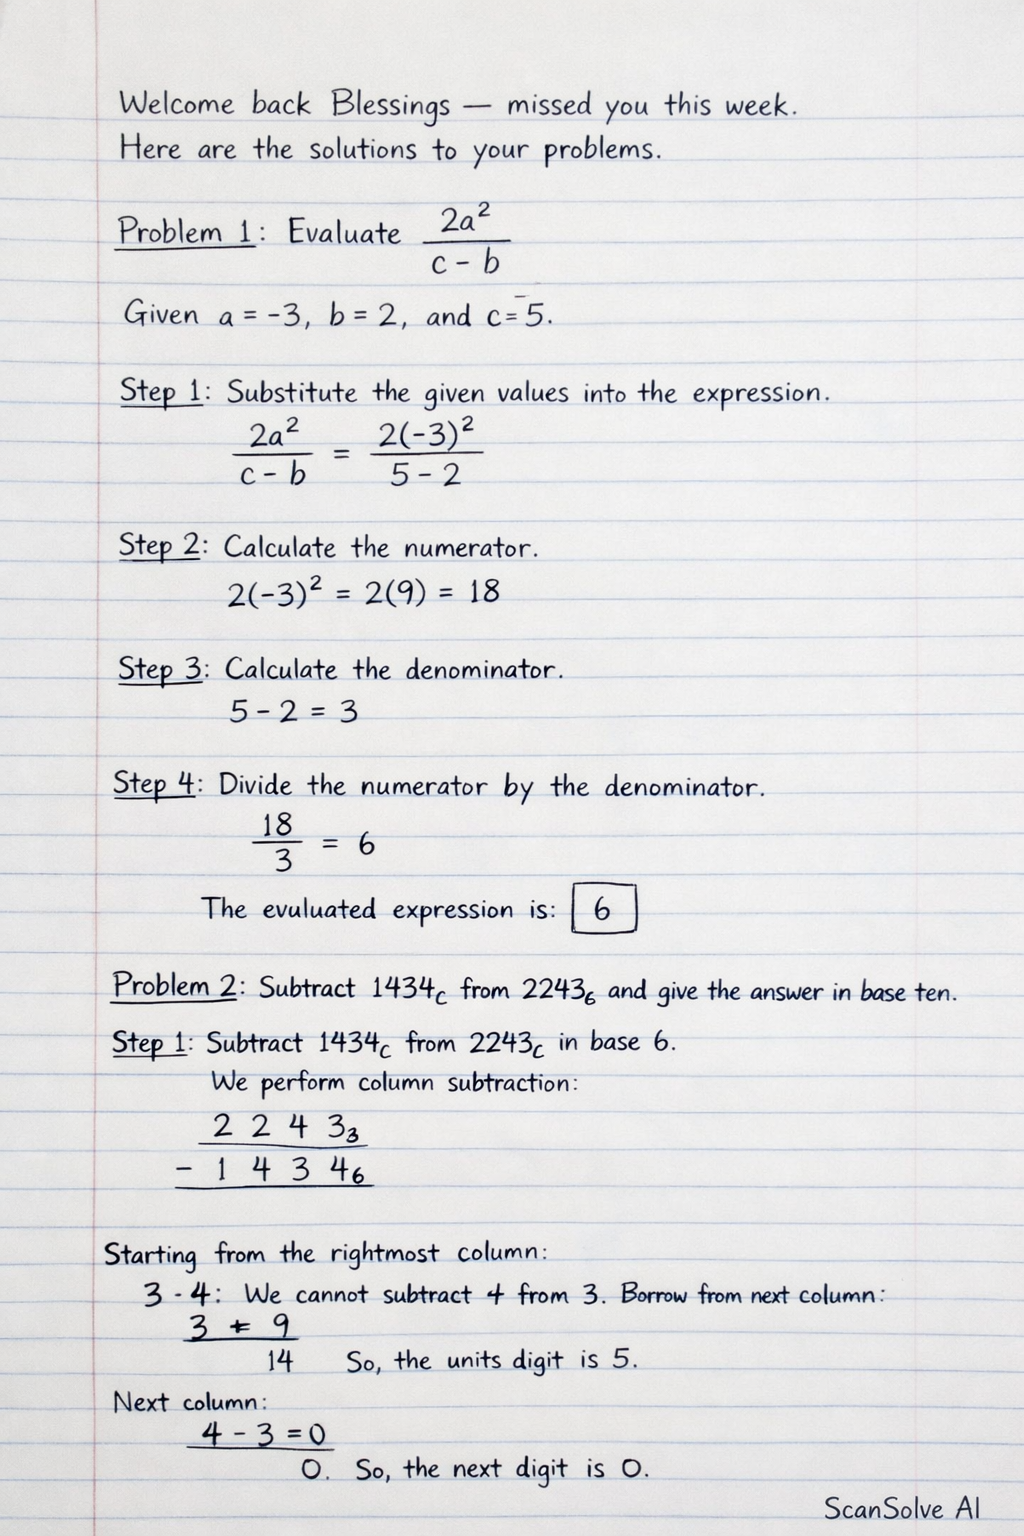 Welcome back Blessings — missed you this week.
Here are the solutions to your problems.
Problem 1: Evaluate 2a²
c - b
Given a = -3, b = 2, and c = 5.
Step 1: Substitute the given values into the expression.
2a² = 2(-3)²
c - b 5 - 2
Step 2: Calculate the numerator.
2(-3)² = 2(9) = 18
Step 3: Calculate the denominator.
5 - 2 = 3
Step 4: Divide the numerator by the denominator.
18
3 = 6
The evuluated expression is: 6
Problem 2: Subtract 1434c from 2243₆ and give the answer in base ten.
Step 1: Subtract 1434c from 2243c in base 6.
We perform column subtraction:
2 2 4 3₃
- 1 4 3 4₆
Starting from the rightmost column:
3 - 4: We cannot subtract 4 from 3. Borrow from next column:
3 + 9
14 So, the units digit is 5.
Next column:
4 - 3 = 0
0. So, the next digit is 0.
ScanSolve AI